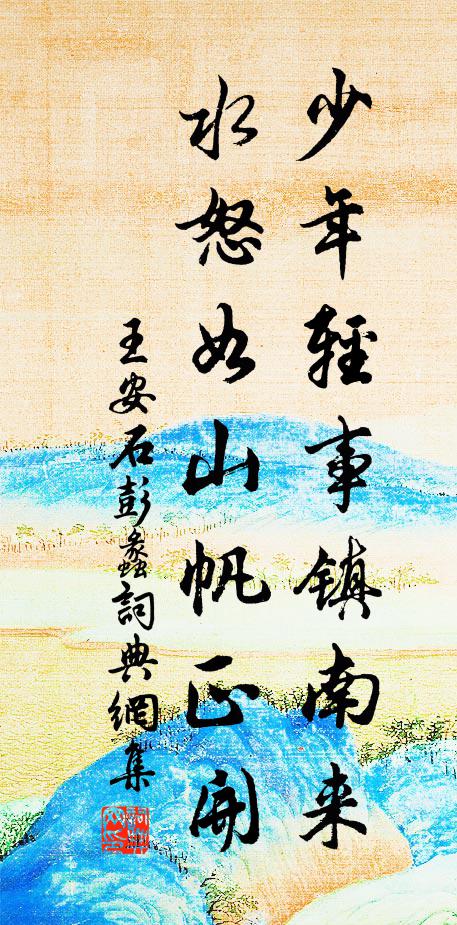 少年輕事镇南来
水怒如山帆正開
王安石彭蠡詞典網集